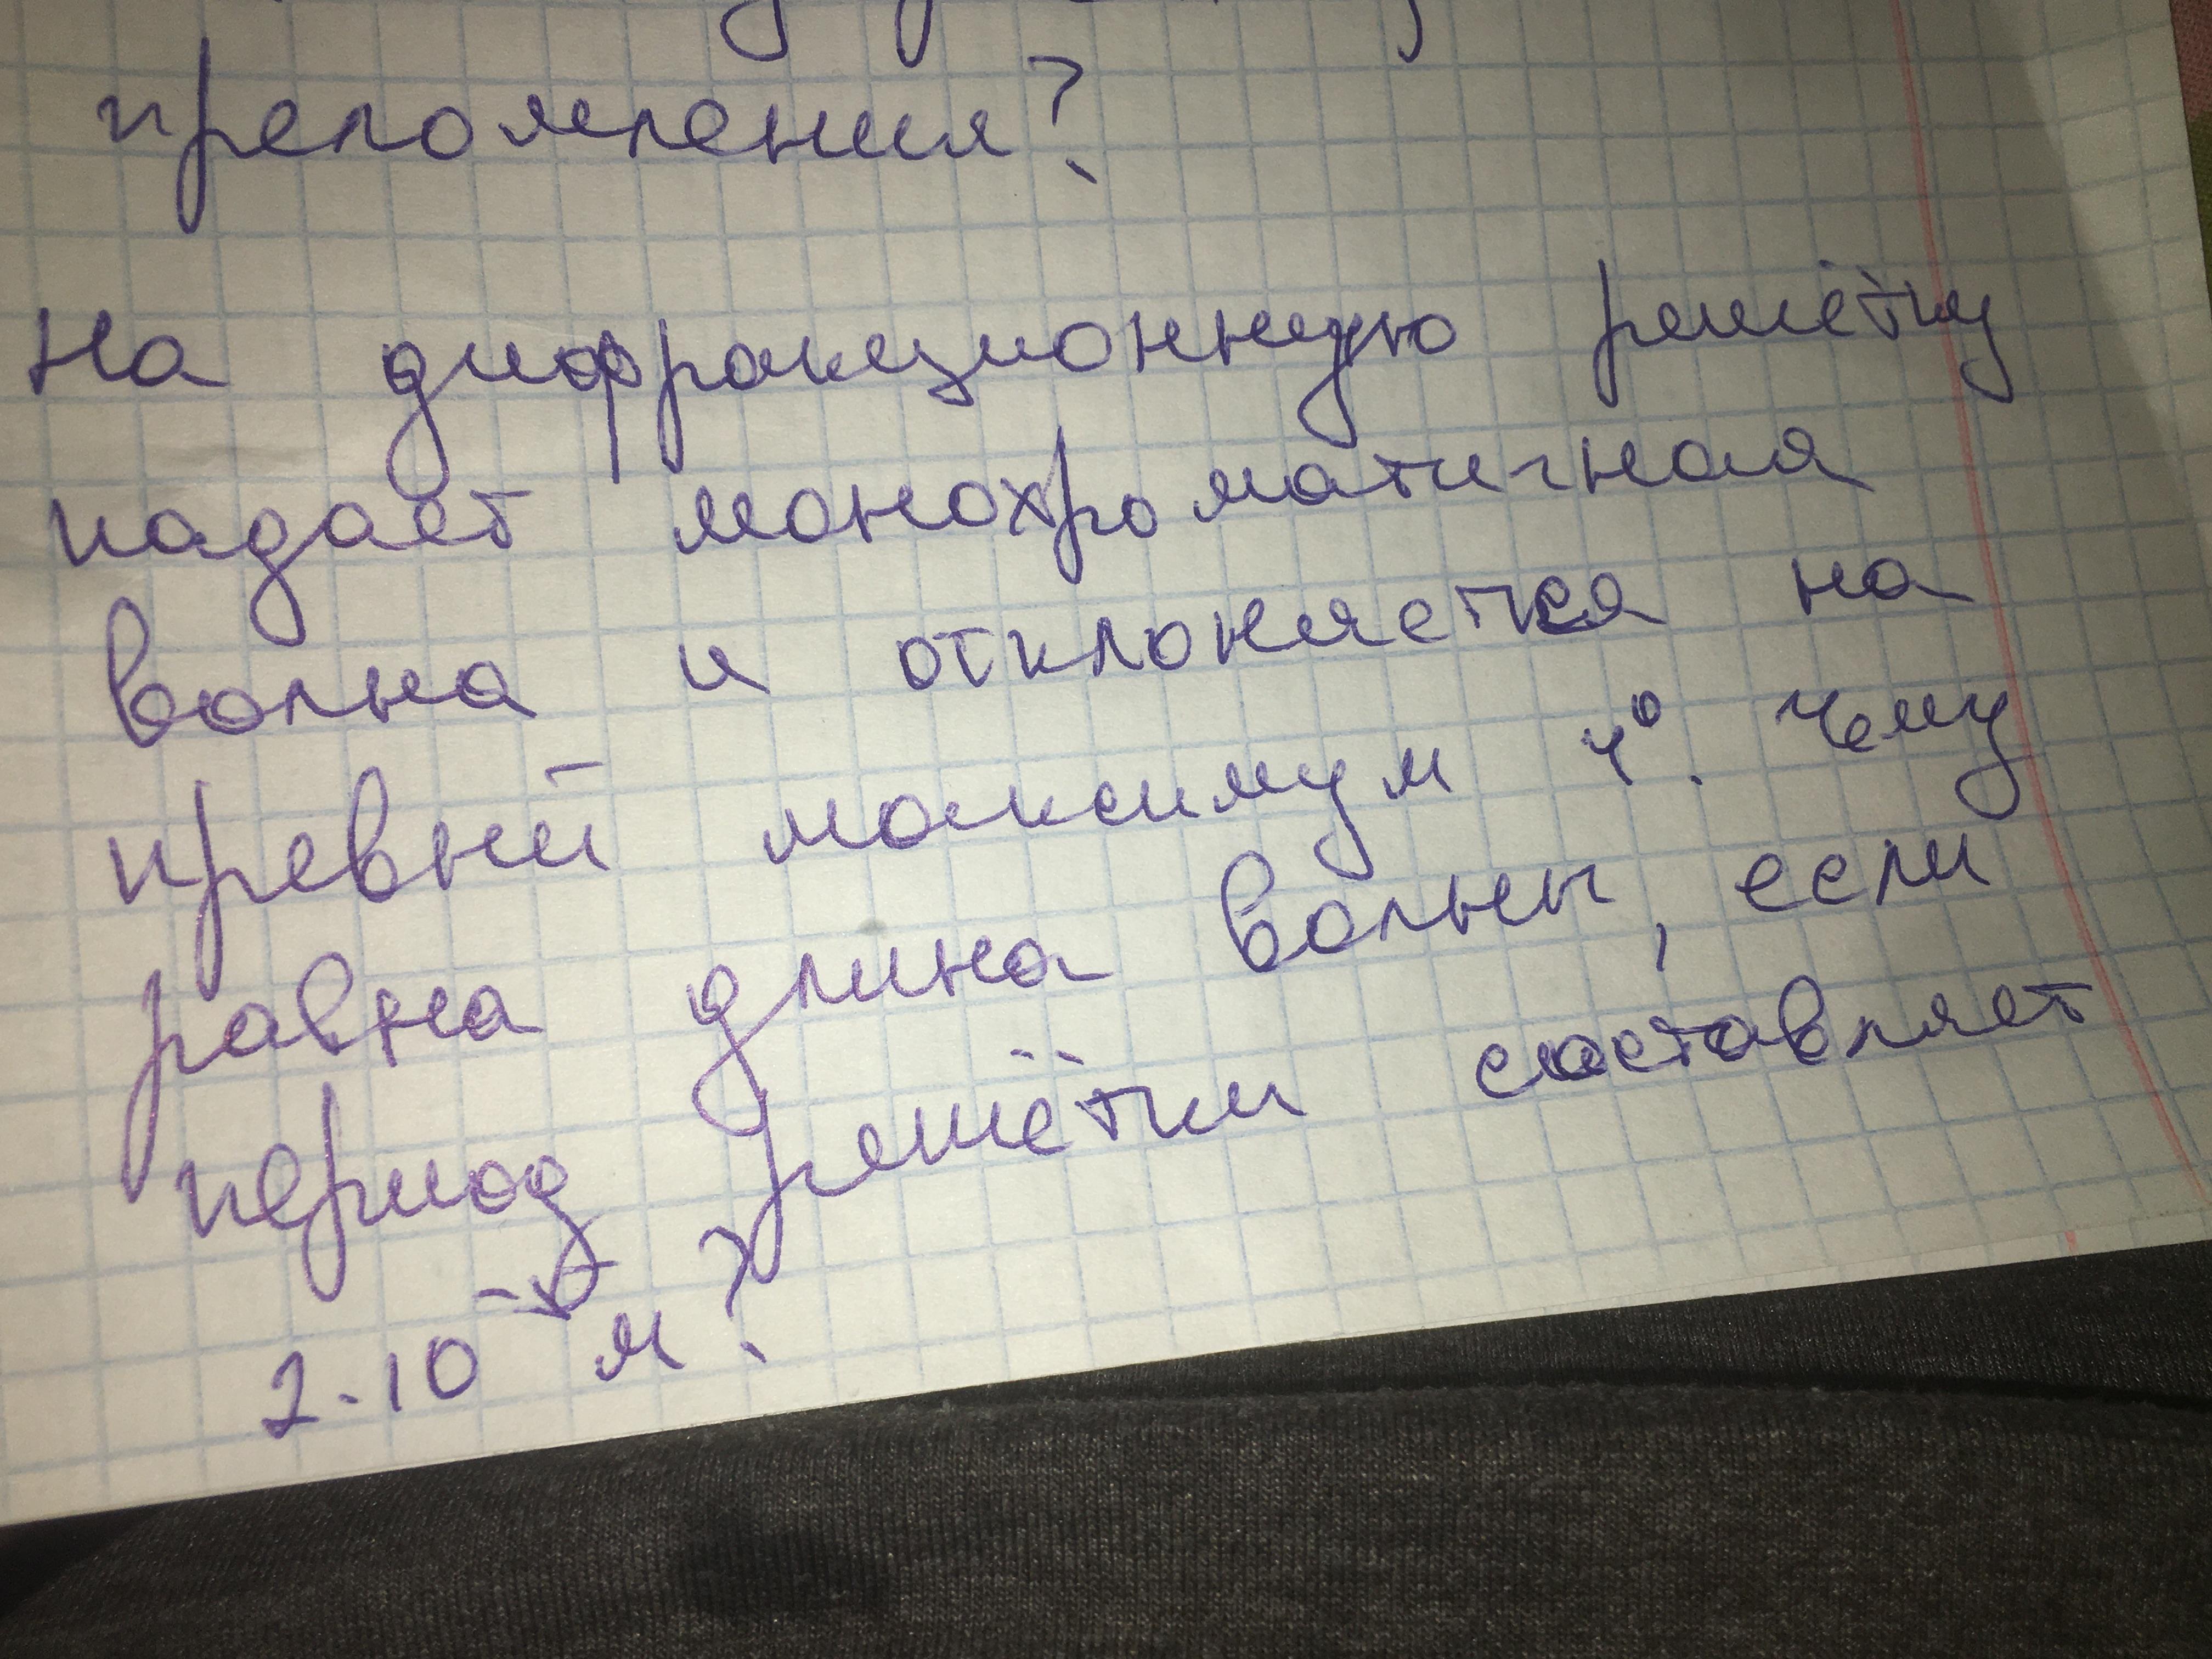 преломления?
На дифракционную решётку
падает монохроматичная
волна и отклоняется на
превый максимум 4°. Чему
равна длина волны, если
период решётки составляет
2·10 м?